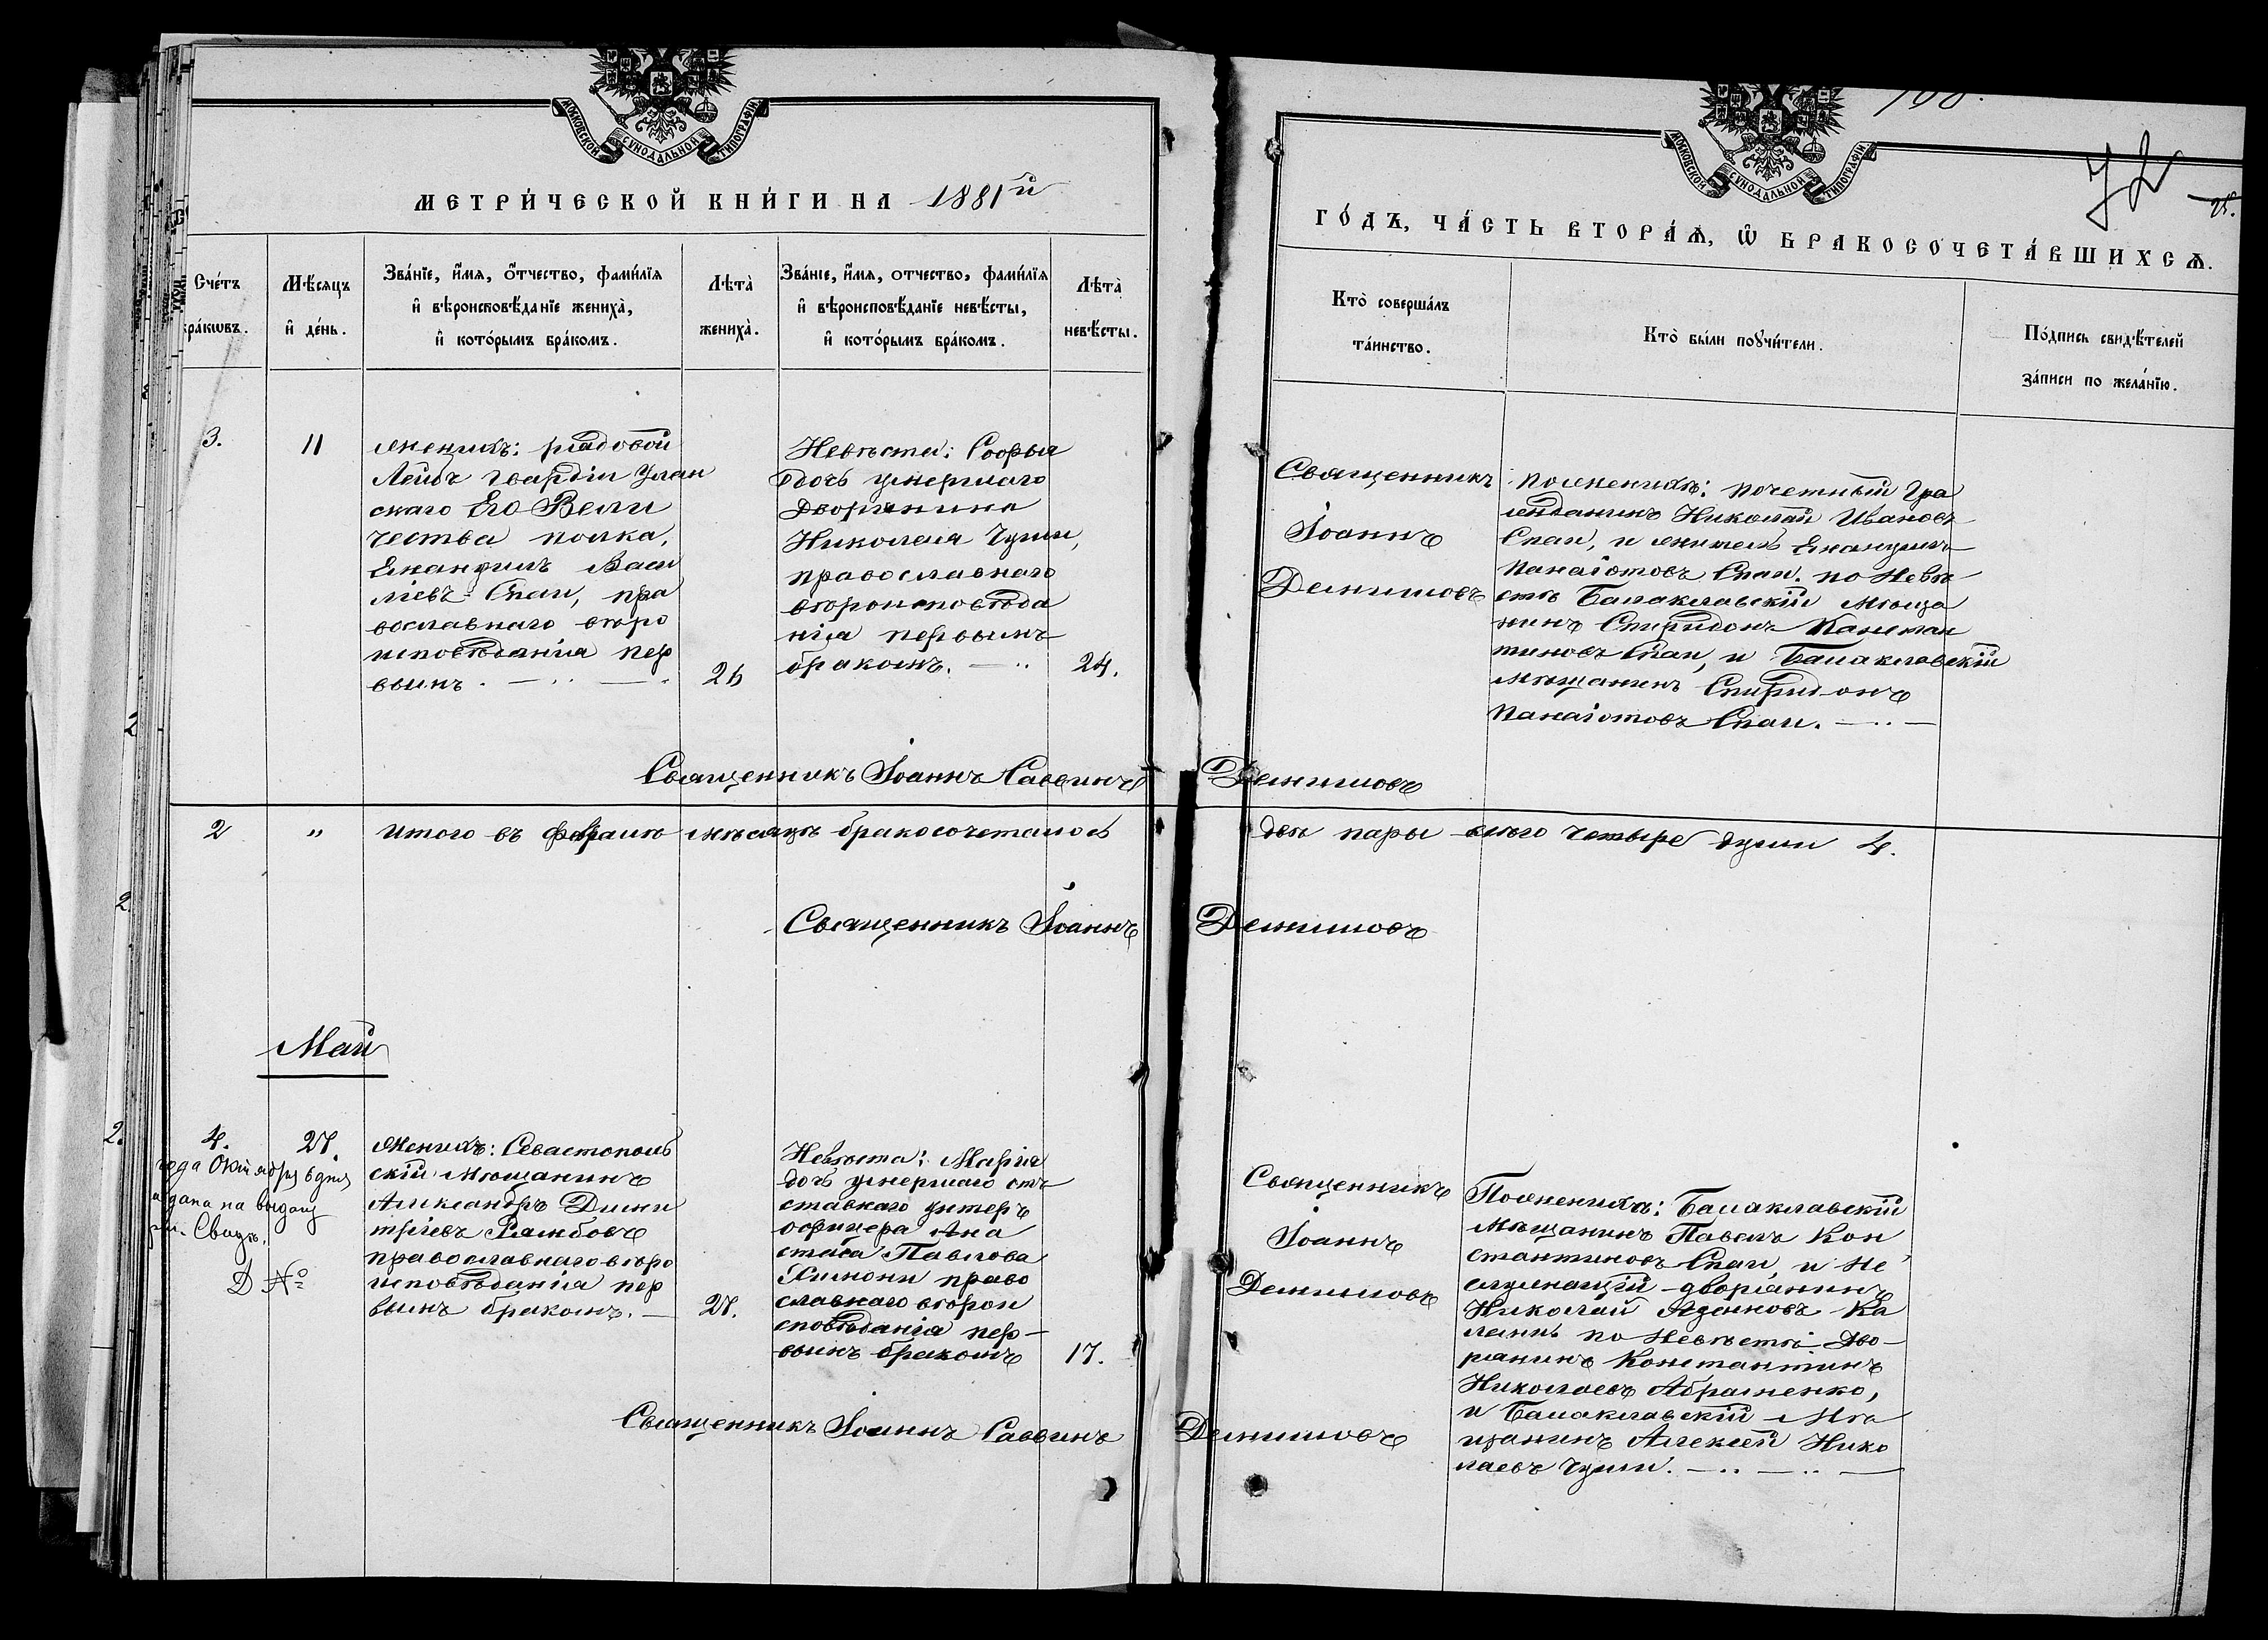 МОСКОВСКОЙ СѴНОДАЛЬНОЙ ТИПОГРАФІИ
МЕТРИ́ЧЕСКОЙ КНИ́ГИ НА 1881й
Сче́тъ
бра́кѡвъ.
Мѣ́сяцъ
и҆ де́нь.
Зва́нїе, и҆́мѧ, ѻ҆́тчество, фами́лїѧ
и҆ вѣроисповѣ́данїе жениха̀,
и҆ кото́рымъ бра́комъ.
Лѣта̀
жениха̀.
Зва́нїе, и҆́мѧ, отчество, фами́лїѧ
и҆ вѣроисповѣ́данїе невѣ́сты,
и҆ кото́рымъ бра́комъ.
Лѣта̀
невѣ́сты.
3.
11
Женихъ: рядовой
Лейбъ гвардіи Улан
скаго Его Вели
чества полка,
Василіевъ Спаи, пра
вославнаго вѣро
исповѣданія пер
вымъ.
26
Невѣста: Софья
дочь умершаго
Дворянина
Николая Чули,
православнаго
вѣроисповѣда
нія первымъ
бракомъ.
24.
Священникъ Іоаннъ Саввинъ
2
"
Итого въ февралѣ мѣсяцѣ бракосочеталось
Священникъ Іоаннъ
Май
4.
27.
года Октября 6 дня
дана на выдачу
Свид.
Д №
Женихъ: Севастополь
скій мѣщанинъ
Александръ Дими
тріевъ
православнаго вѣро
исповѣданія пер
вымъ бракомъ.
27.
Невѣста: Марія
дочь умершаго от
ставнаго унтеръ
офицера Ана
стаса Павлова
право
славнаго вѣрои
сповѣданія пер-
вымъ бракомъ
17.
Священникъ Іоаннъ Саввинъ
МОСКОВСКОЙ СѴНОДАЛЬНОЙ ТИПОГРАФІИ
25.
ГО́ДЪ, ЧА́СТЬ ВТОРА́Ѧ, Ѡ҆ БРАКОСОЧЕТА́ВШИХСѦ.
Кто̀ соверша́лъ
та́инство.
Кто̀ бы́ли поꙋчи́тели.
По́дпись свидѣ́телей
за́писи по жела́нїю.
Священникъ
Іоаннъ
Демишовъ
По женихѣ: почетный гра
жданинъ Николай Ивановъ
Спаи, и житель
Панаіотовъ Спаи. по Невѣ
стѣ Балаклавскій мѣща
нинъ Спиридонъ Констан
тиновъ Спаи, и Балаклавскій
мѣщанинъ Спиридонъ
Панаіотовъ Спаи.
Демишовъ
двѣ пары всего четыре души 4.
Демишовъ
Священникъ
Іоаннъ
Демишовъ
По женихѣ: Балаклавскій
мѣщанинъ Павелъ Кон
стантиновъ Спаи и не
служащій дворянинъ
Николай
по Невѣстѣ Дво-
рянинъ Константинъ
Николаевъ Абраменко,
и Балаклавскій мѣ
щанинъ Алексѣй Нико
лаевъ Чули.
Демишовъ